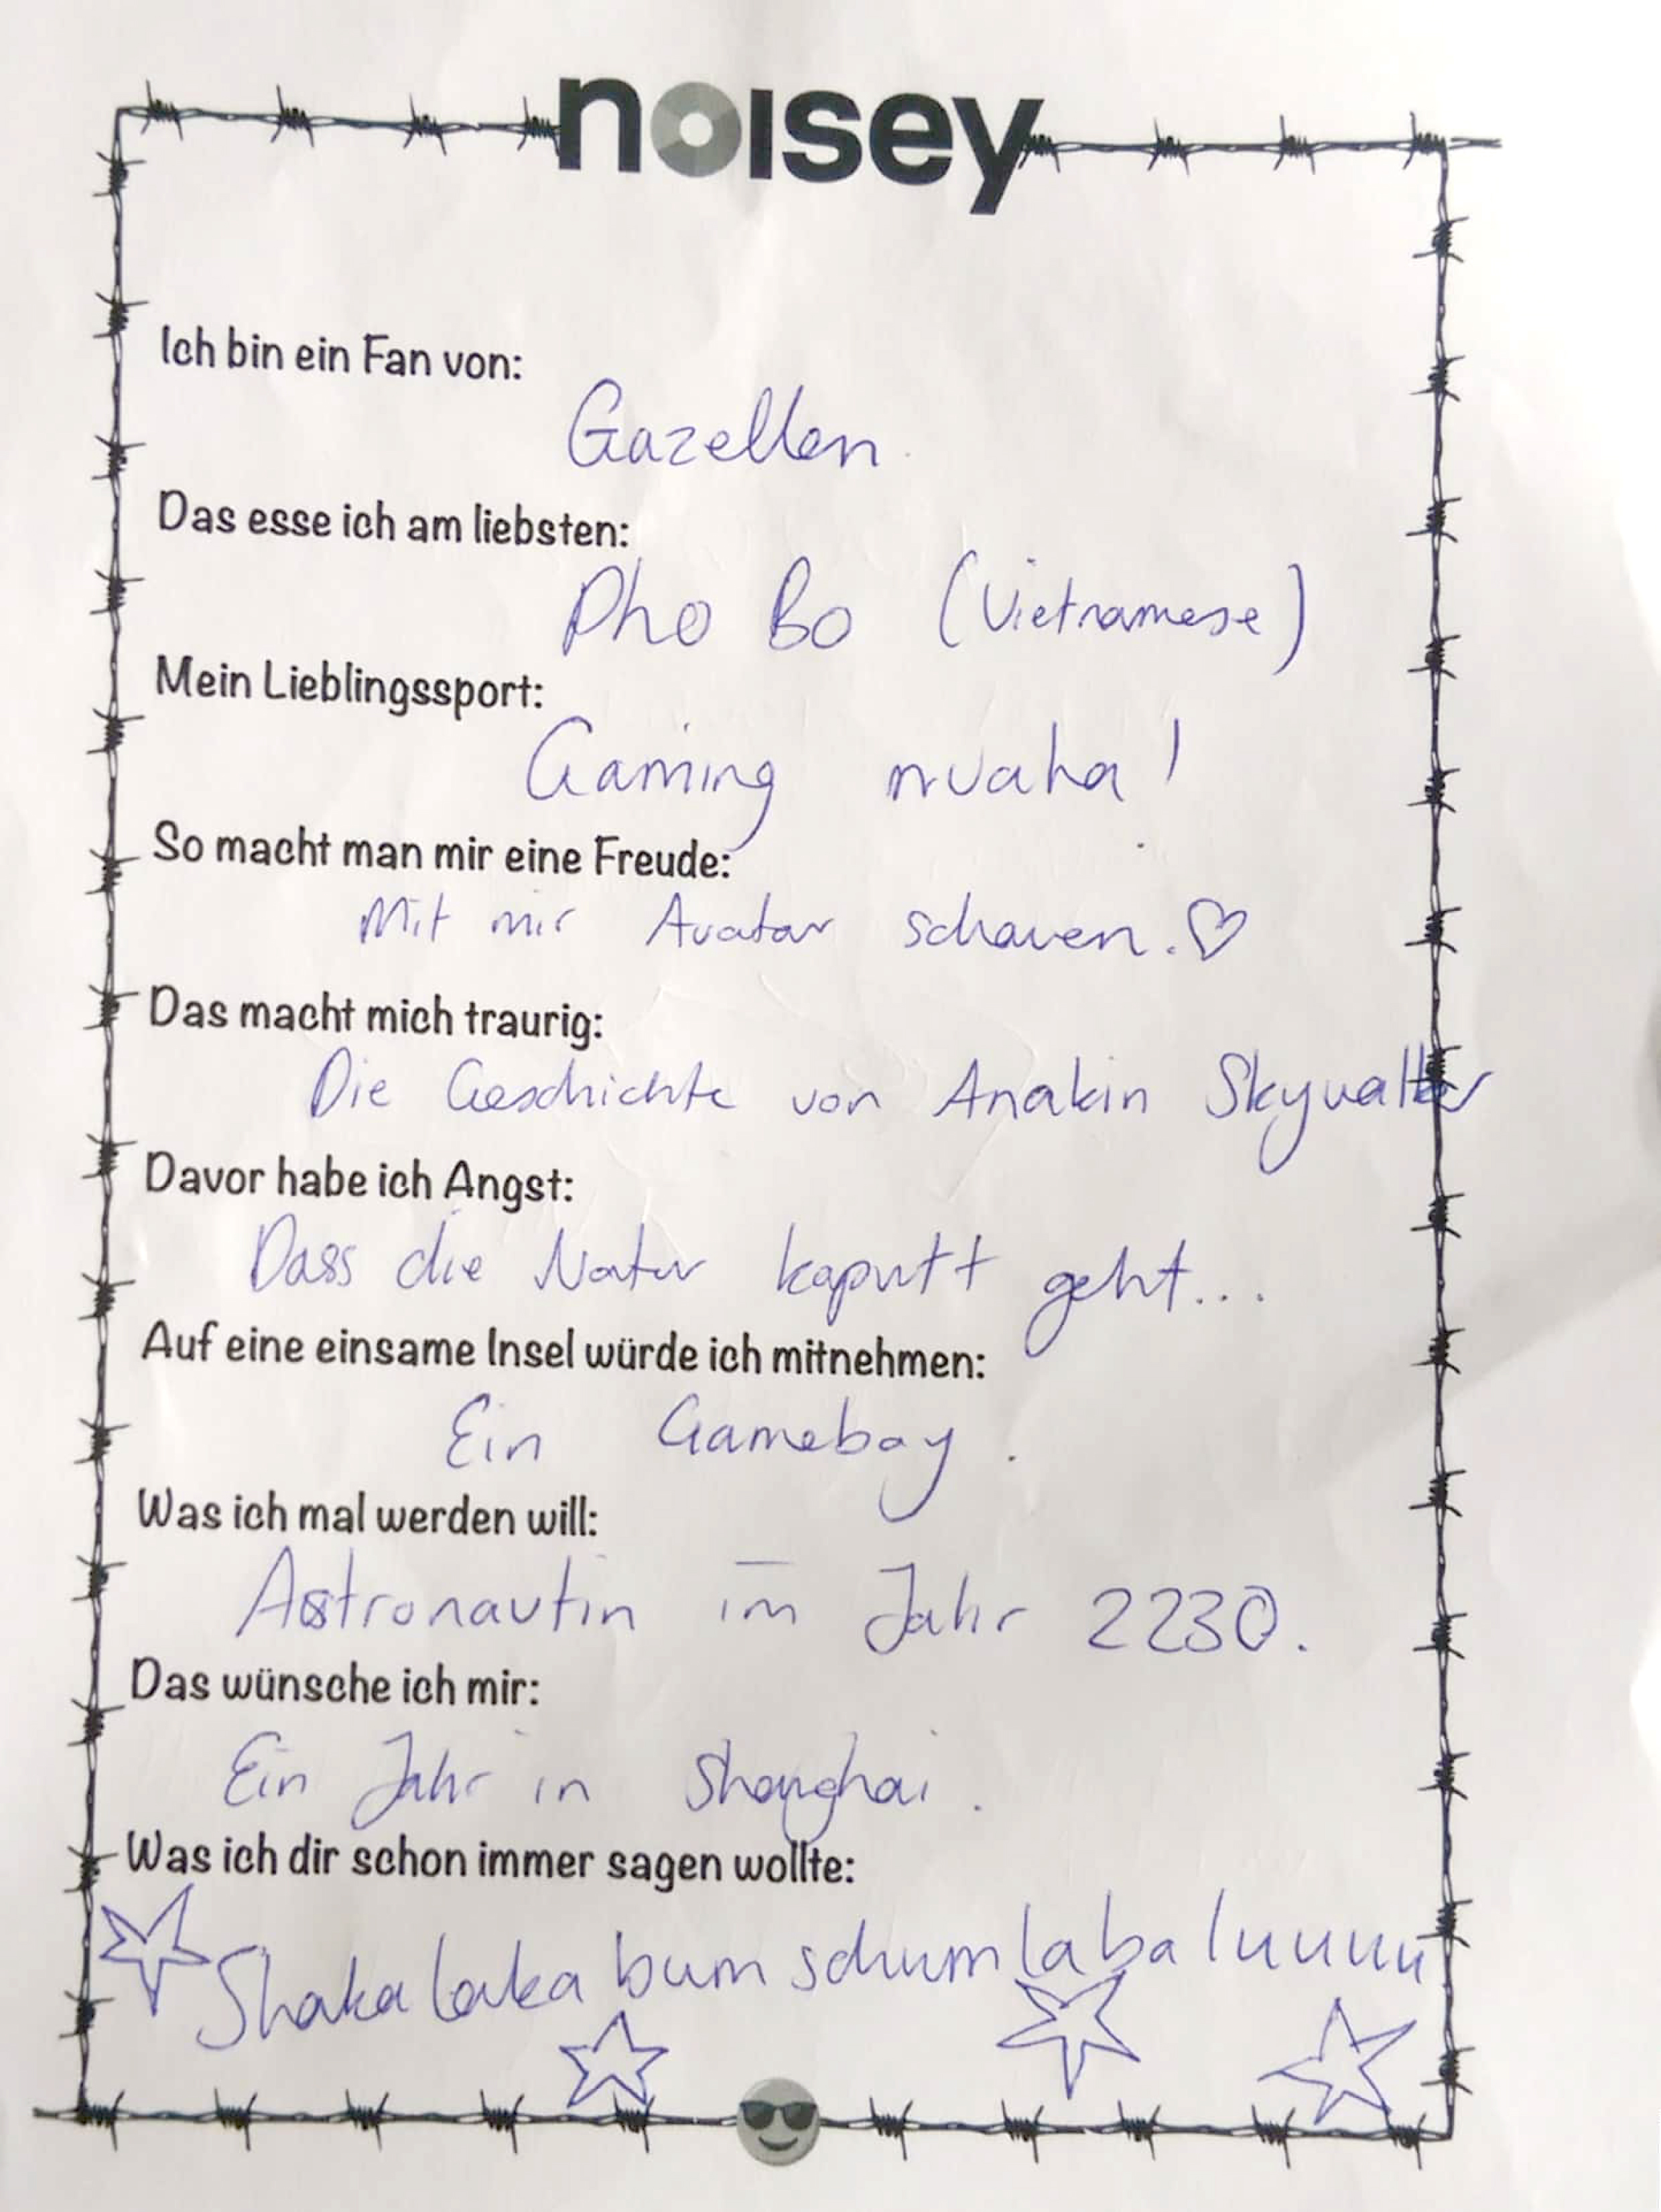 noisey
Ich bin ein Fan von:
Gazellen.
Das esse ich am liebsten:
Pho Bo (Vietnamese)
Mein Lieblingssport:
Gaming muaha!
So macht man mir eine Freude:
Mit mir Avatar schauen. ♡
Das macht mich traurig:
Die Geschichte von Anakin Skywalker
Davor habe ich Angst:
Dass die Natur kaputt geht...
Auf eine einsame Insel würde ich mitnehmen:
Ein Gameboy.
Was ich mal werden will:
Astronautin im Jahr 2230.
Das wünsche ich mir:
Ein Jahr in Shanghai.
Was ich dir schon immer sagen wollte:
Shakalaka bum schumlabaluuuu